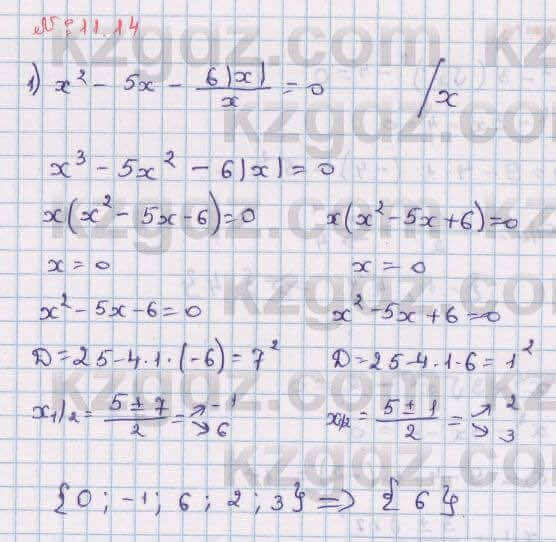 № 11.14
1) x² - 5x - 6|x|/x = 0 /x
x³ - 5x² - 6|x| = 0
x(x² - 5x - 6) = 0 x(x² - 5x + 6) = 0
x = 0 x = 0
x² - 5x - 6 = 0 x² - 5x + 6 = 0
D = 25 - 4·1·(-6) = 7² D = 25 - 4·1·6 = 1²
x₁/₂ = (5 ± 7)/2 = ↗ -1 ↘ 6 x₁/₂ = (5 ± 1)/2 = ↗ 2 ↘ 3
{0; -1; 6; 2; 3} => {6}.
kzgdz.com